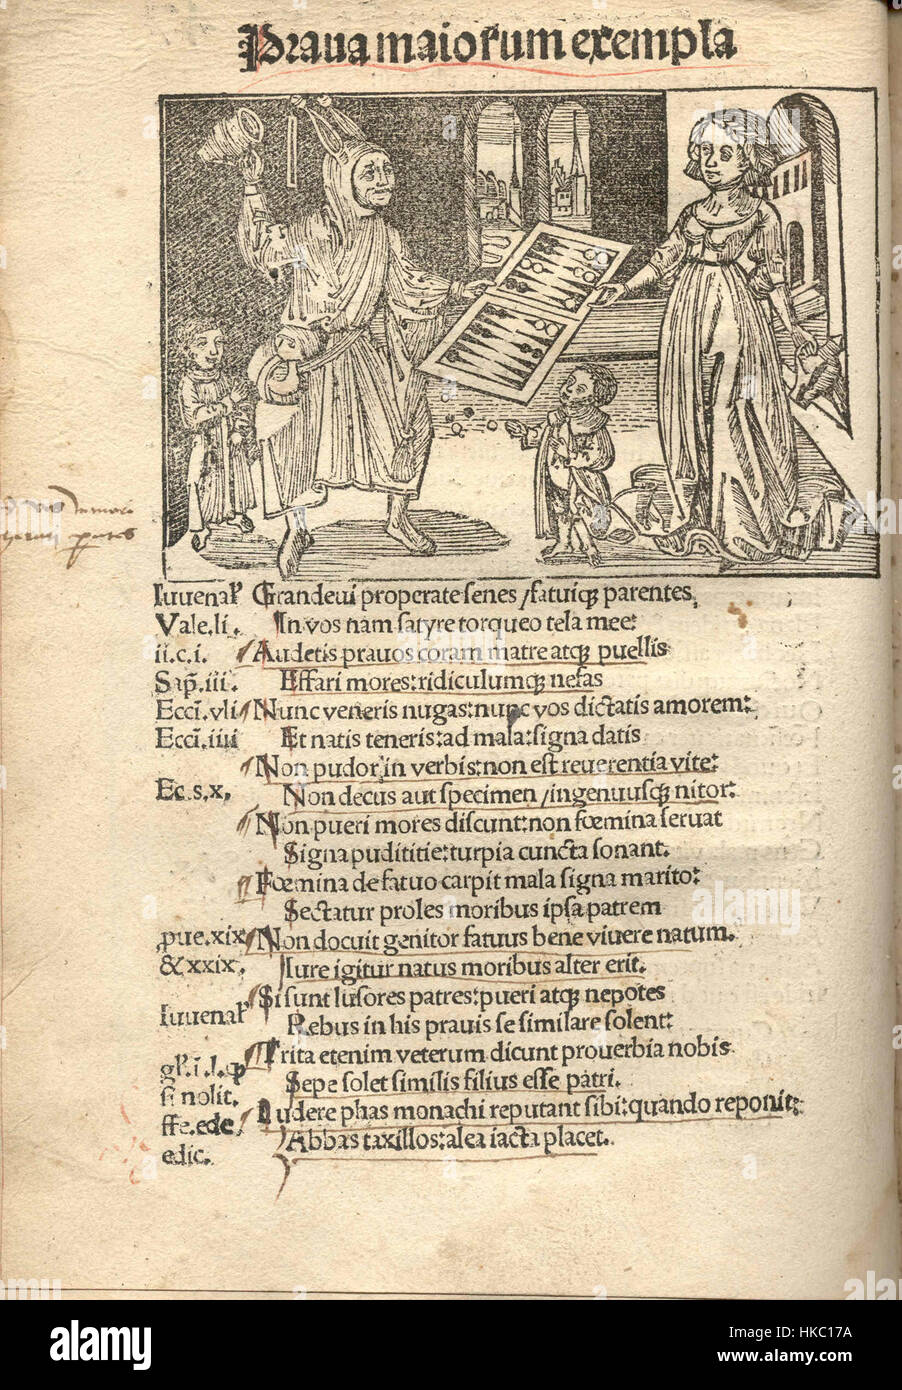 Praua maiorum exempla
Iuuenaľ Grandeui properate senes / fatuiq3 parentes,
Vale.li. In vos nam satyre torqueo tela mee:
ii.c.i. Audetis prauos coram matre atq3 puellis
Sap̄.iii. Effari mores: ridiculumq3 nefas
Ecci̅.vli Nunc veneris nugas: nunc vos dictatis amorem:
Ecci̅.iiii Et natis teneris: ad mala: signa datis
Non pudor in verbis: non est reuerentia vite:
Ec.s.x, Non decus aut specimen / ingenuusq3 nitor:
Non pueri mores discunt: non fœmina seruat
Signa pudititie: turpia cuncta sonant.
Fœmina de fatuo carpit mala signa marito:
Sectatur proles moribus ipsa patrem
,pue.xix Non docuit genitor fatuus bene viuere natum.
&xxix. Iure igitur natus moribus alter erit.
Si sunt lusores patres: pueri atq3 nepotes
Iuuenaľ Rebus in his prauis se similare solent:
Trita etenim veterum dicunt prouerbia nobis
Sepe solet similis filius esse patri.
si nolit.
Ludere phas monachi reputant sibi: quando reponit:
ffe.ede Abbas taxillos: alea iacta placet.
edic.
alamy stock photo
HKC17A